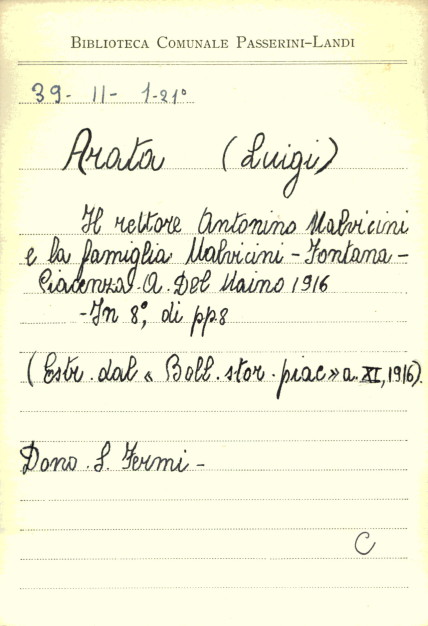 BIBLIOTECA COMUNALE PASSERINI-LANDI
39- II- 1-21°
Arata (Luigi)
Il rettore Antonino Malvicini
e la famiglia Malvicini-Fontana-
Piacenza. A. Del Maino 1916
-In 8°, di pp8
(Estr. dal « Boll. stor. piac » a. XI, 1916).
Dono. S. Fermi-
C